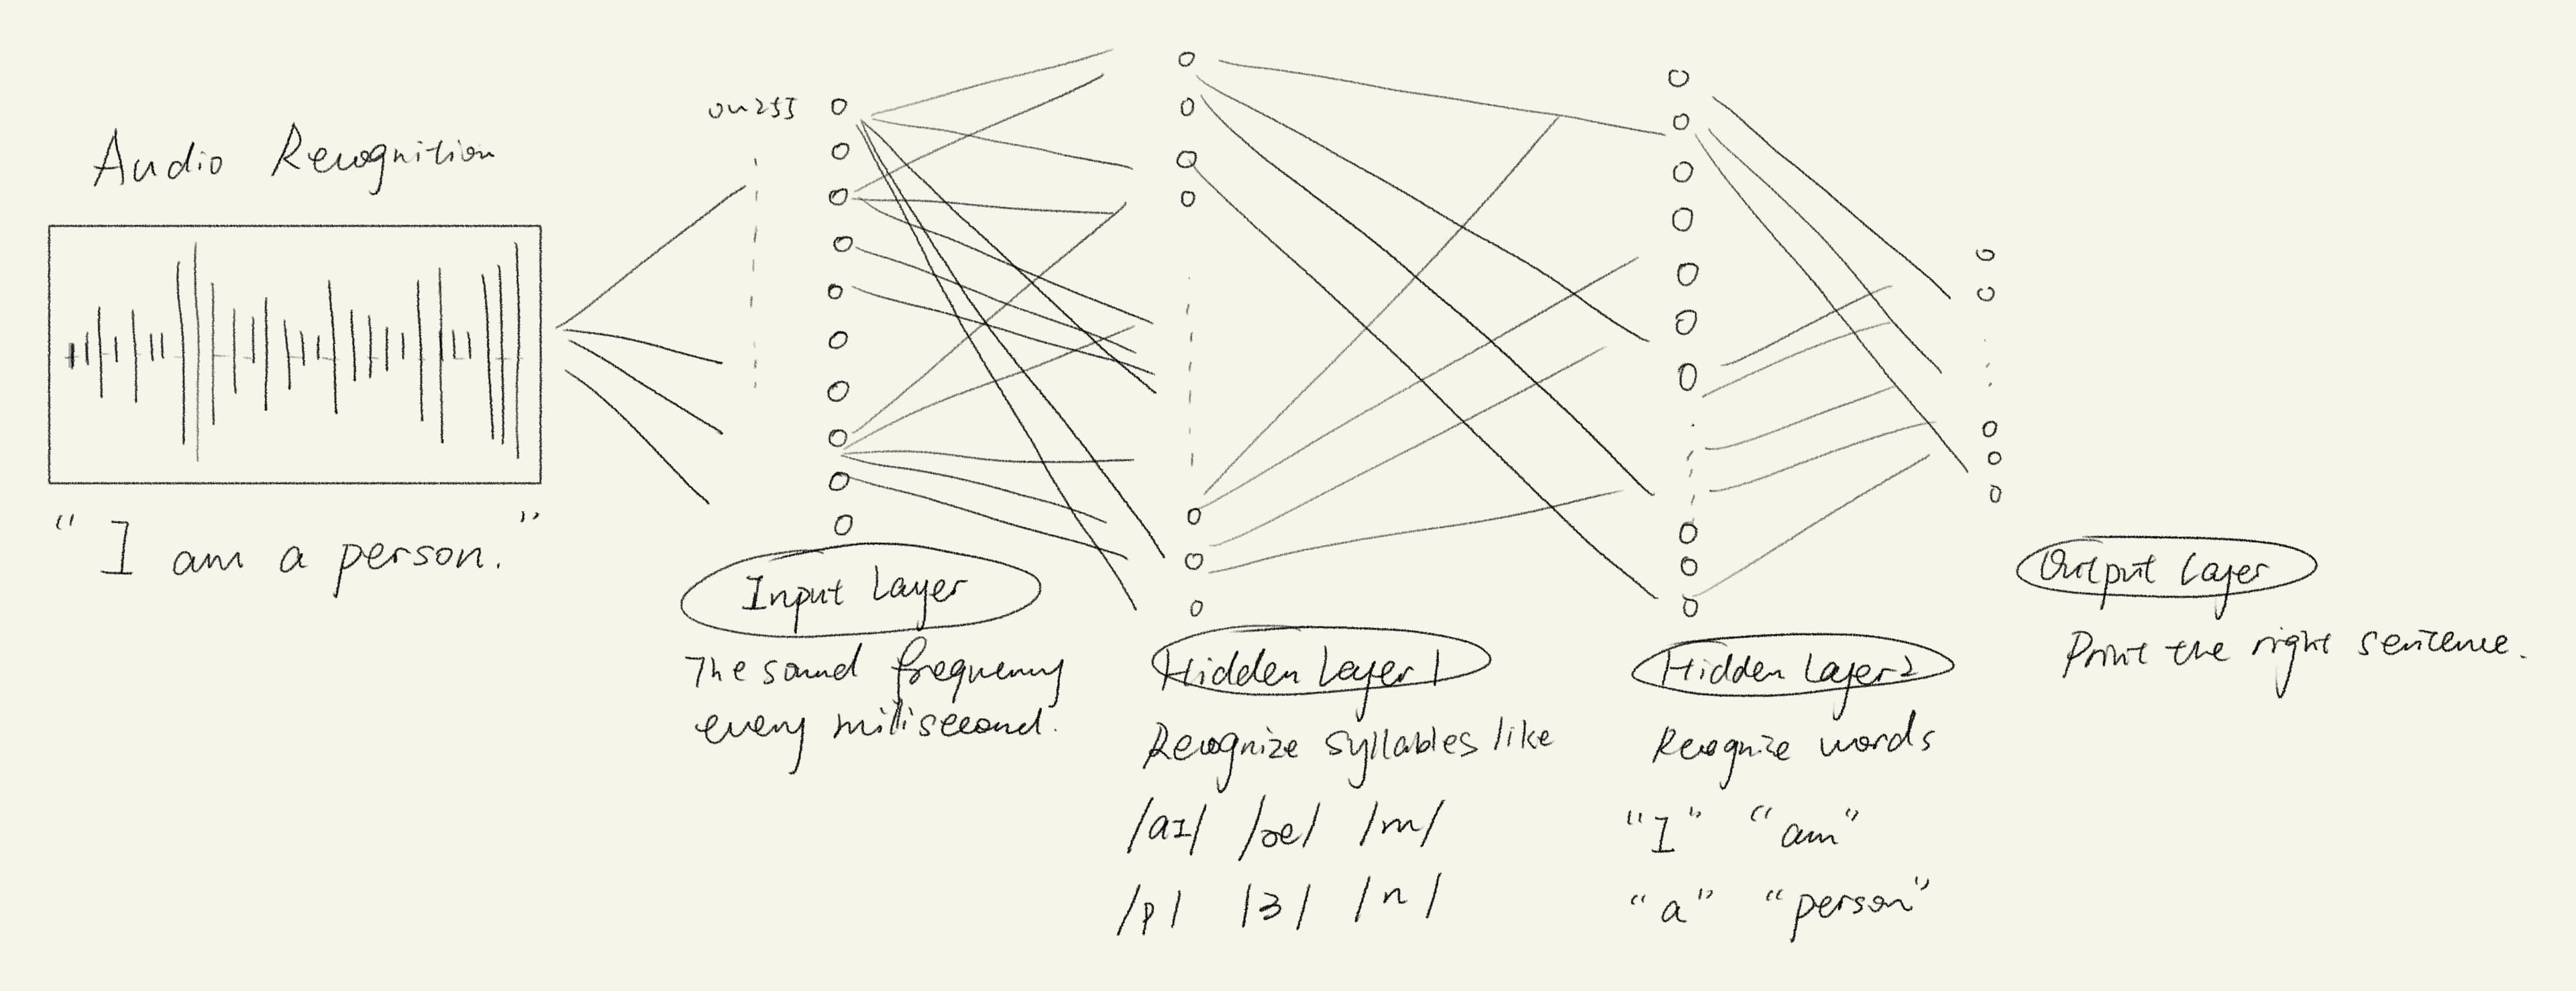 Audio Recognition
"I am a person."
Input Layer
The sound frequency
every milisecond.
Hidden Layer 1
Recognize syllables like
/aɪ/ /æ/ /m/
/p/ /ɜ/ /n/
Hidden Layer 2
Recognize words
"I" "am"
"a" "person"
Output Layer
Print the right sentence.